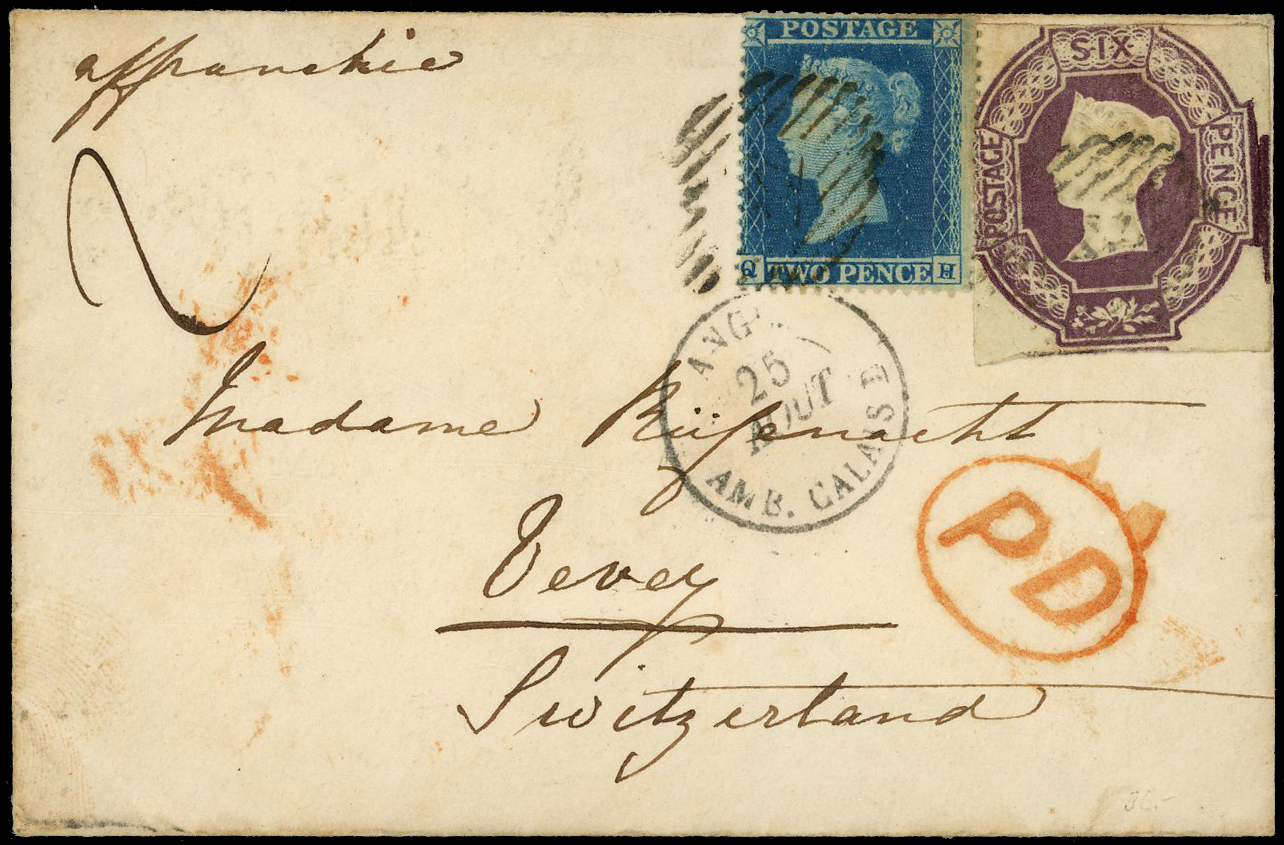 affranchie
POSTAGE
Q TWO PENCE H
SIX
POSTAGE
PENCE
ANG
25
AOUT
AMB. CALAIS E
Madame Rüfenacht
PD
Vevey
Switzerland